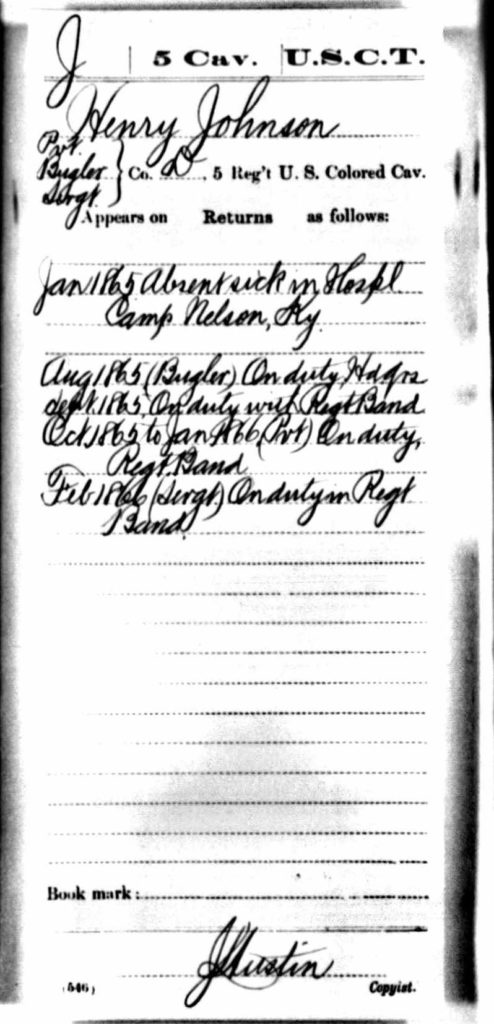 J | 5 Cav. | U.S.C.T.
Henry Johnson
Pvt.
Bugler
Sergt
Co. D, 5 Reg't U. S. Colored Cav.
Appears on Returns as follows:
Jan 1865 Absent sick in Hospl
Camp Nelson, Ky
Aug 1865 (Bugler) On duty Hdqrs
Sept. 1865, On duty with Regt Band
Oct 1865 to Jan 1866 (Pvt) On duty,
Regt. Band
Feb 1866 (Sergt) On duty in Regt
Band
Book mark:
J Austin
(546) Copyist.